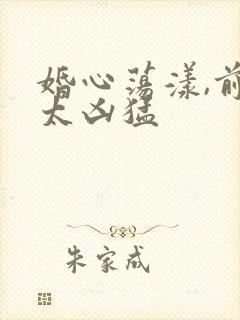 婚心荡漾,前
太凶猛
朱家成